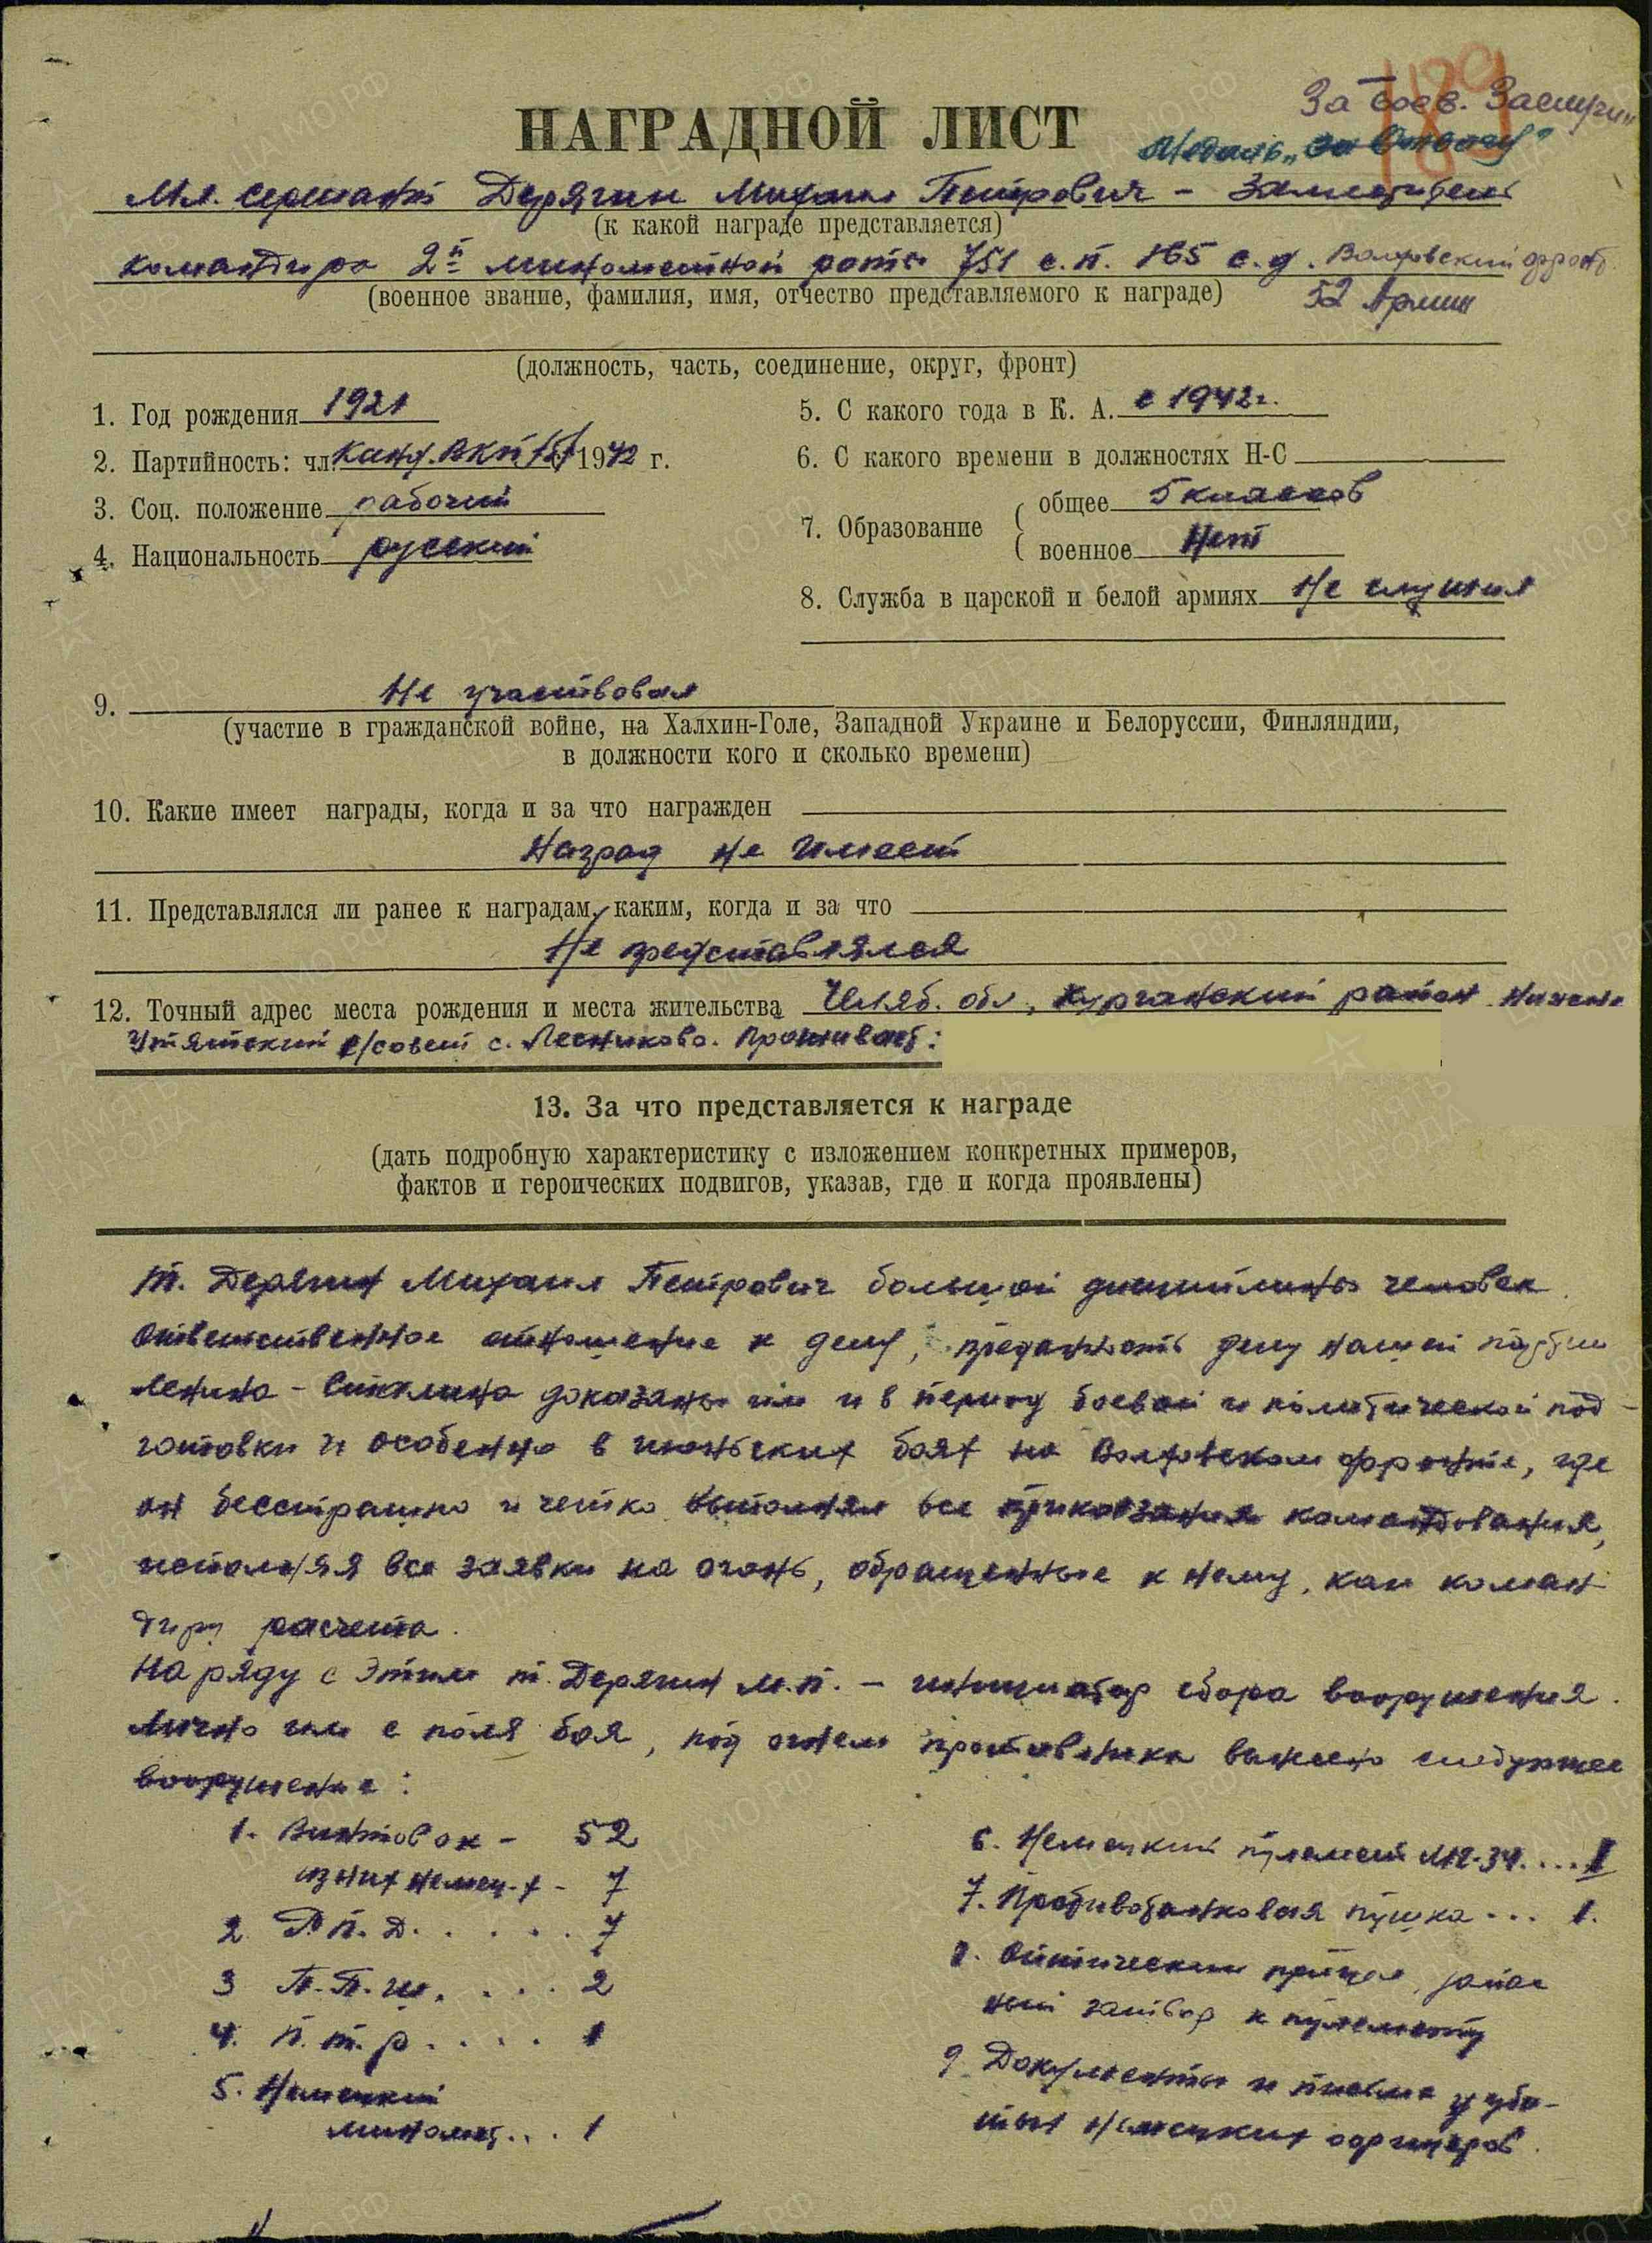 189
За боев. Заслуги"
НАГРАДНОЙ ЛИСТ
Медаль „За Отвагу"
Мл. сержант Дерягин Михаил Петрович – Заместитель
(к какой награде представляется)
командира 2й минометной роты 751 с.п. 165 с.д. Волховский фронт
(военное звание, фамилия, имя, отчество представляемого к награде)
52 Армии
(должность, часть, соединение, округ, фронт)
1. Год рождения 1921
5. С какого года в К. А. с 1942 г.
2. Партийность: чл. Канд. ВКП/б/ 1942 г.
6. С какого времени в должностях Н-С
3. Соц. положение рабочий
7. Образование
общее 5 классов
4. Национальность русский
военное Нет
8. Служба в царской и белой армиях Не служил
9. Не участвовал
(участие в гражданской войне, на Халхин-Голе, Западной Украине и Белоруссии, Финляндии,
в должности кого и сколько времени)
10. Какие имеет награды, когда и за что награжден
Наград не имеет
11. Представлялся ли ранее к наградам, каким, когда и за что
Не представлялся
12. Точный адрес места рождения и места жительства Челяб. обл., Курганский район Нижне
Утятский с/совет с. Лесниково. Проживает:
13. За что представляется к награде
(дать подробную характеристику с изложением конкретных примеров,
фактов и героических подвигов, указав, где и когда проявлены)
т. Дерягин Михаил Петрович большой дисциплины человек.
Ответственное отношение к делу, преданность делу нашей партии
Ленина – Сталина доказаны им и в период боевой и политической под-
готовки и особенно в июньских боях на Волховском фронте, где
он бесстрашно и четко выполнял все приказания командования,
исполняя все заявки на огонь, обращенные к нему, как коман-
диру расчета.
Наряду с этим т. Дерягин М.П. – инициатор сбора вооружения.
Лично им с поля боя, под огнем противника вынесено следующее
вооружение:
1. Винтовок – 52
из них немец-х – 7
2 Р.П.Д. . . . . . 7
3 П.П.Ш. . . . . 2
4. П.Т.Р. . . . . 1
5. Немецкий
миномет . . . 1
6. Немецкий пулемет МГ-34. . . . 1
7. Противотанковая пушка . . . 1.
8. Оптический прицел, запас
ный затвор к пулемету
9 Документы и письма у уби-
тых немецких офицеров.